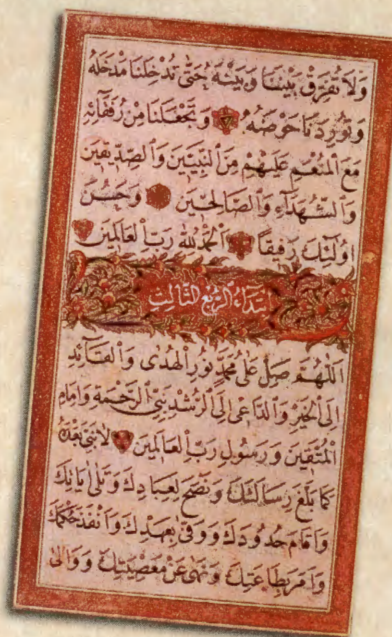 وَلَا تُفَرِّقْ بَيْنَنَا وَبَيْنَهُ حَتَّى تُدْخِلَنَا مَدْخَلَهُ
وَتُورِدَنَا حَوْضَهُ وَتَجْعَلَنَا مِنْ رُفَقَائِهِ
مَعَ الْمُنْعَمِ عَلَيْهِمْ مِنَ النَّبِيِّينَ وَالصِّدِّيقِينَ
وَالشُّهَدَاءِ وَالصَّالِحِينَ وَحَسُنَ
اُولَئِكَ رَفِيقًا اَلْحَمْدُ لِلَّهِ رَبِّ الْعَالَمِينَ
اِبْتِدَاءُ الرُّبْعِ الثَّالِثِ
اَللَّهُمَّ صَلِّ عَلَى مُحَمَّدٍ نُورِ الْهُدَى وَالْقَائِدِ
اِلَى الْخَيْرِ وَالدَّاعِى اِلَى الرُّشْدِ نَبِيِّ الرَّحْمَةِ وَاِمَامِ
الْمُتَّقِينَ وَرَسُولِ رَبِّ الْعَالَمِينَ لَا نَبِيَّ بَعْدَهُ
كَمَا بَلَّغَ رِسَالَتَكَ وَنَصَحَ لِعِبَادِكَ وَتَلَى اٰيَاتِكَ
وَاَقَامَ حُدُودَكَ وَوَفَّى بِعَهْدِكَ وَاَنْفَذَ حُكْمَكَ
وَاَمَرَ بِطَاعَتِكَ وَنَهَى عَنْ مَعْصِيَتِكَ وَوَالَى